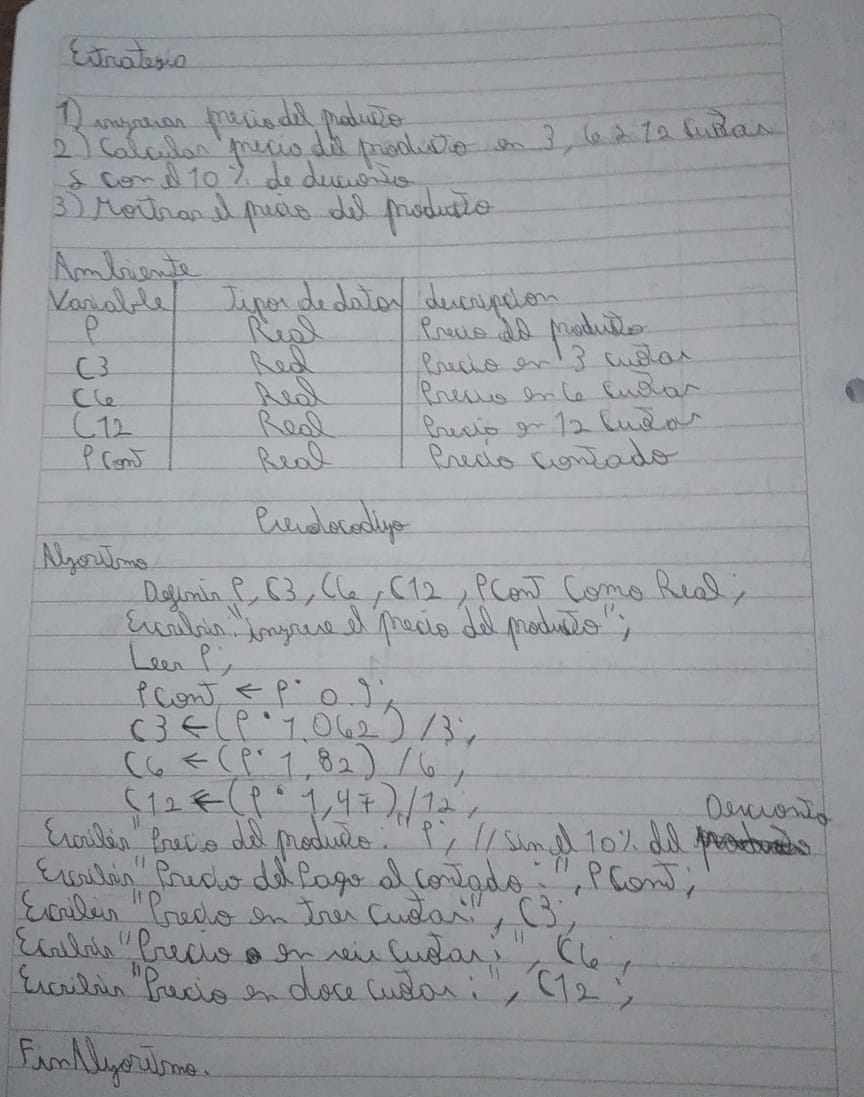 Estrategia
1) ingresar precio del producto
2) Calcular precio del producto en 3, 6 o 12 cuotas
y con el 10% de descuento
3) Mostrar el precio del producto
Ambiente
Variable Tipos de datos descripcion
P Real Precio del producto
C3 Real Precio en 3 cuotas
C6 Real Precio en 6 cuotas
C12 Real Precio en 12 cuotas
PConT Real Precio contado
Pseudocodigo
Algoritmo
Definir P, C3, C6, C12, PConT Como Real;
Escribir "ingrese el precio del producto";
Leer P;
PConT ← P * 0.9;
C3 ← (P * 1,062) / 3;
C6 ← (P * 1,82) / 6;
C12 ← (P * 1,47) / 12;
Descuento
Escribir "Precio del producto: "P; // Sin el 10% del
Escribir "Precio del Pago al contado:", PConT;
Escribir "Precio en tres cuotas:", C3;
Escribir "Precio en seis cuotas:", C6;
Escribir "Precio en doce cuotas:", C12;
FinAlgoritmo.